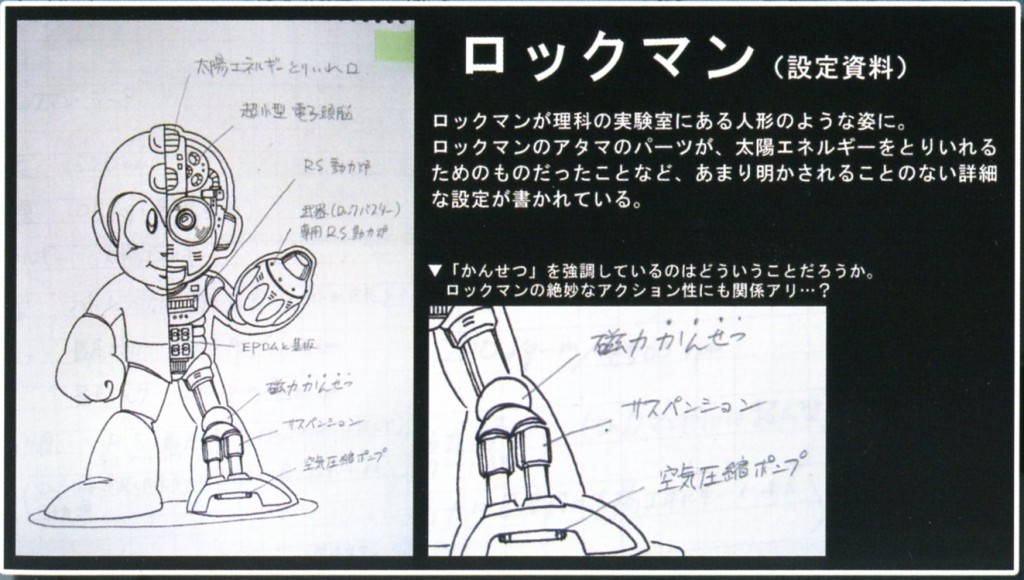 太陽エネルギーとりいれ口
超小型 電子頭脳
RS動力炉
武器(ロックバスター)
専用RS動力炉
EPROMと基板
磁力かんせつ
サスペンション
空気圧縮ポンプ
ロックマン(設定資料)
ロックマンが理科の実験室にある人形のような姿に。
ロックマンのアタマのパーツが、太陽エネルギーをとりいれる
ためのものだったことなど、あまり明かされることのない詳細
な設定が書かれている。
▼「かんせつ」を強調しているのはどういうことだろうか。
ロックマンの絶妙なアクション性にも関係アリ…?
磁力かんせつ
サスペンション
空気圧縮ポンプ